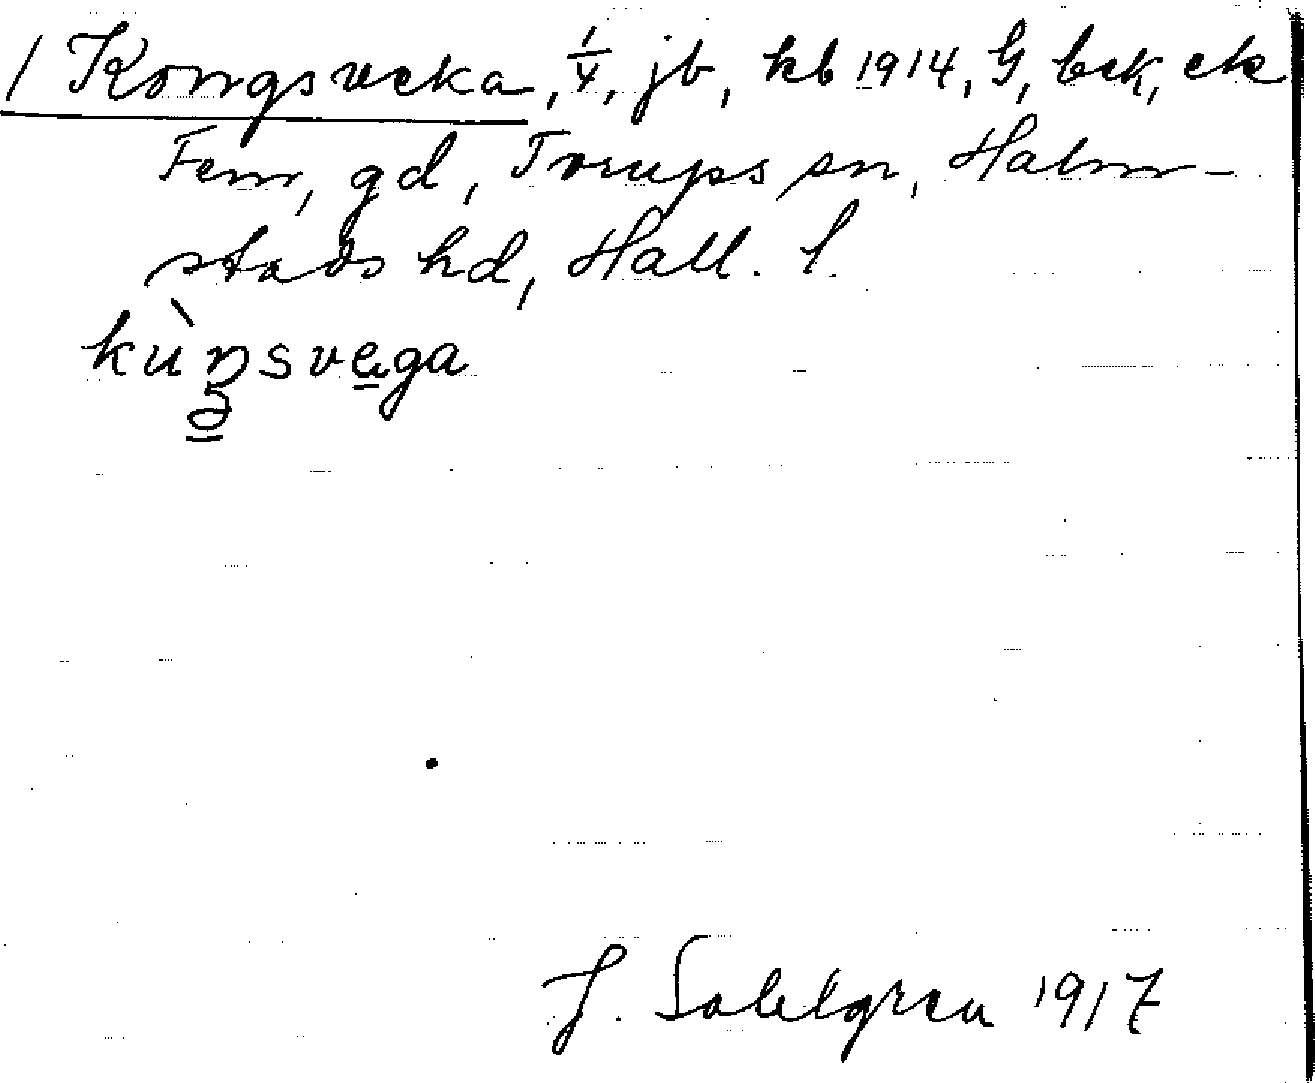 1 Kongsveka, 1/4, jb, kb 1914, G, bek, ek
Fem, gd, Torups sn, Halm-
stads hd, Hall. l.
kùŋsvega
J. Sahlgren 1917